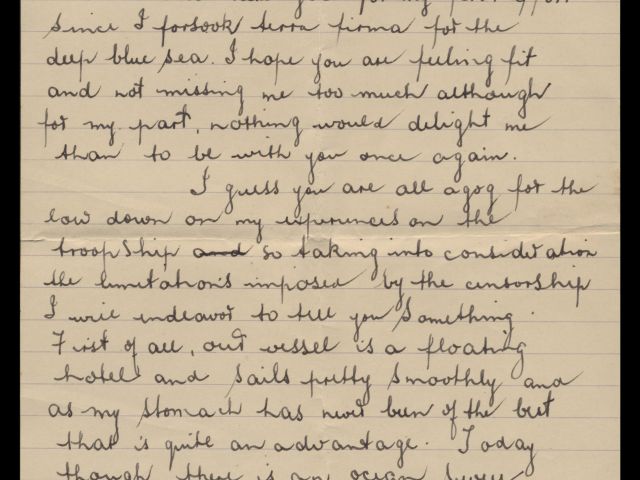 for my
since I forsook terra firma for the
deep blue sea. I hope you are feeling fit
and not missing me too much although
for my part, nothing would delight me
than to be with you once again.
I guess you are all agog for the
low down on my experiences on the
troopship and so taking into consideration
the limitations imposed by the censorship
I will endeavor to tell you something.
First of all, our vessel is a floating
hotel and sails pretty smoothly and
as my stomach has never been of the best
that is quite an advantage. Today
though there is an ocean